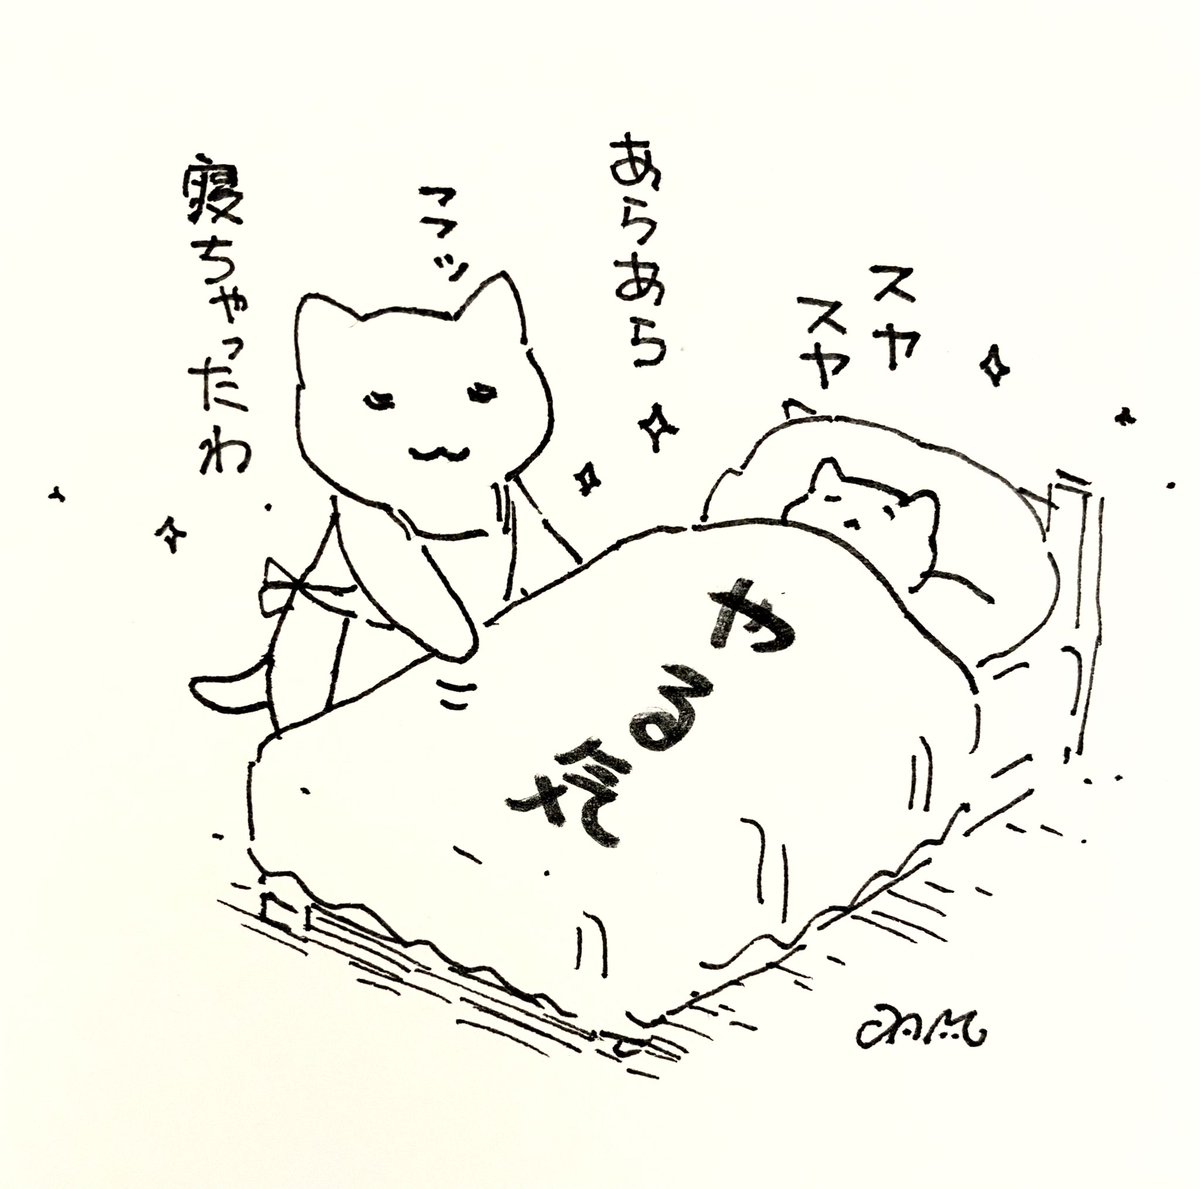 スヤ
スヤ
あらあら
フフッ
寝ちゃったわ
やる気